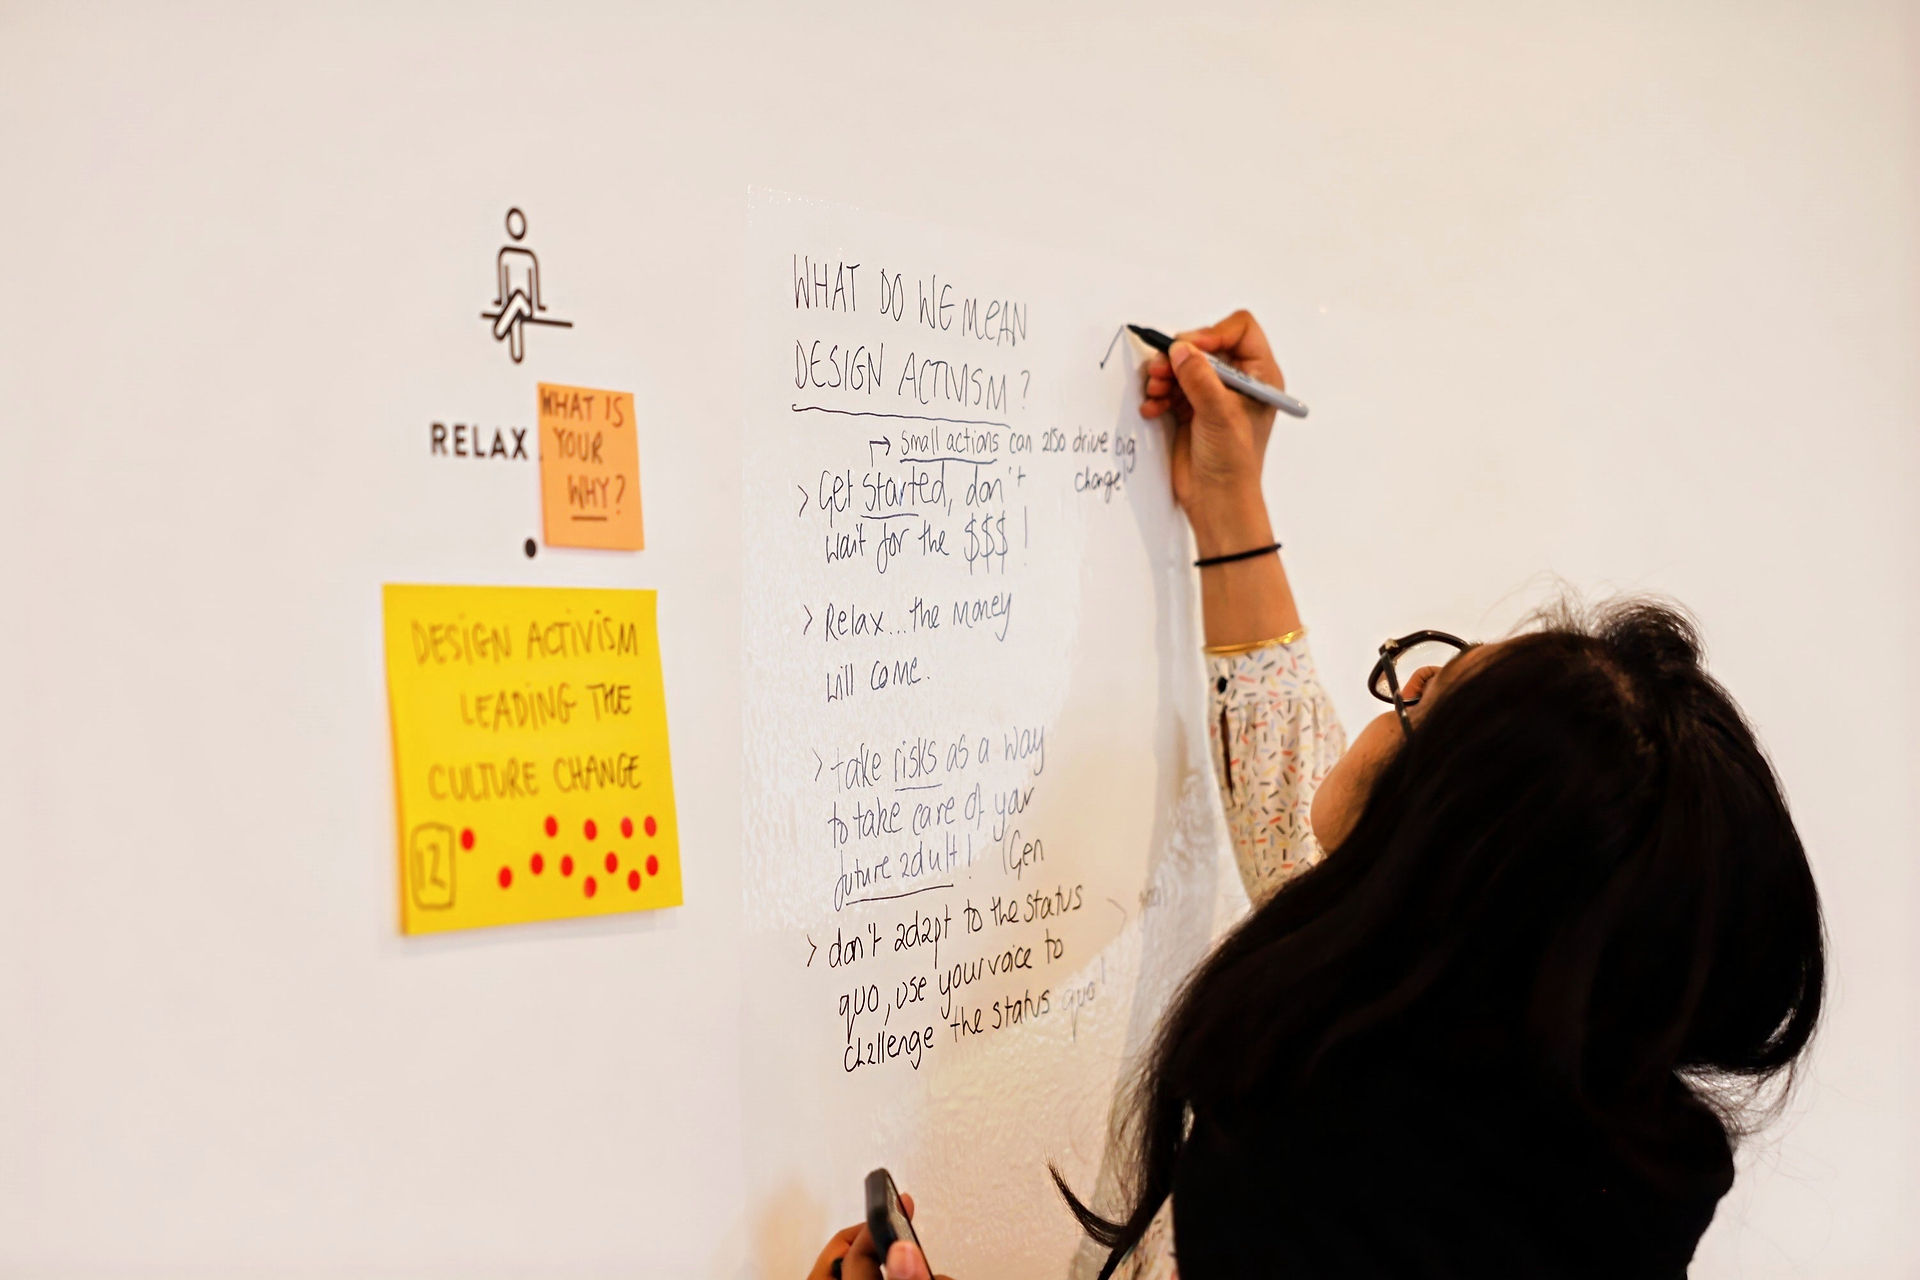 RELAX.
WHAT IS
YOUR
WHY?
DESIGN ACTIVISM
LEADING THE
CULTURE CHANGE
12
WHAT DO WE MEAN
DESIGN ACTIVISM?
→ small actions can also drive big
change!
> Get started, don't
wait for the $$$ !
> Relax... the money
will come.
> take risks as a way
to take care of your
future adult! (Gen
> don't adapt to the status
quo, use your voice to
challenge the status quo!